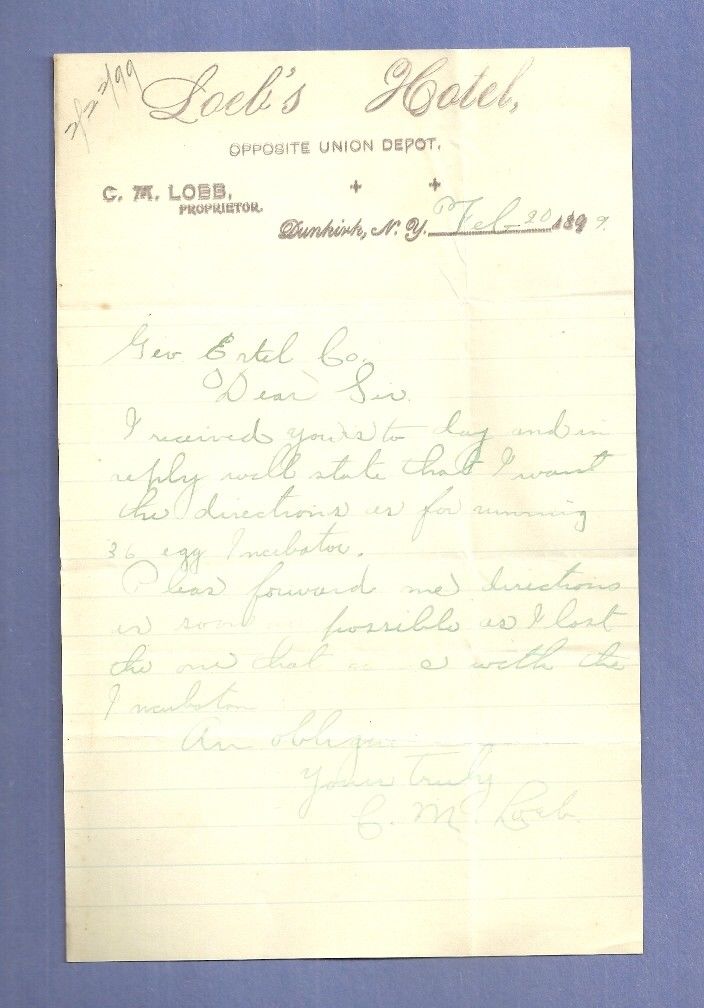 2/22/99
Loeb's Hotel,
OPPOSITE UNION DEPOT.
C. M. LOEB,
PROPRIETOR.
Dunkirk, N. Y. Feb 20 1899.
Geo Ertel Co.
Dear Sir
I received yours to day and in
reply will state that I want
the directions is for running
36 egg Incubator.
Pleas forward me directions
as soon possible as I lost
the one that with the
Incubator
An oblige
Yours truly
C. M. Loeb